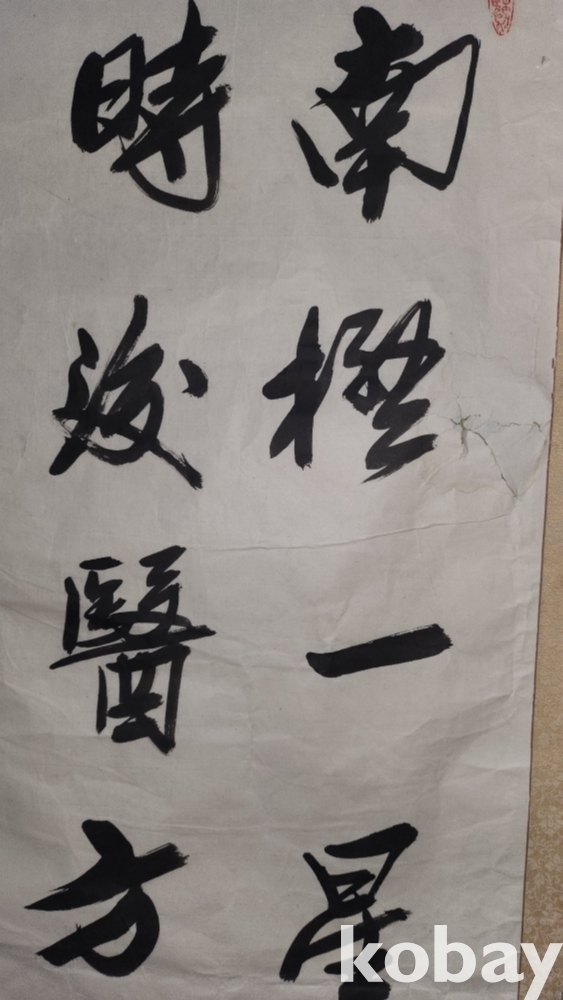 南極一星
時後醫方
kobay